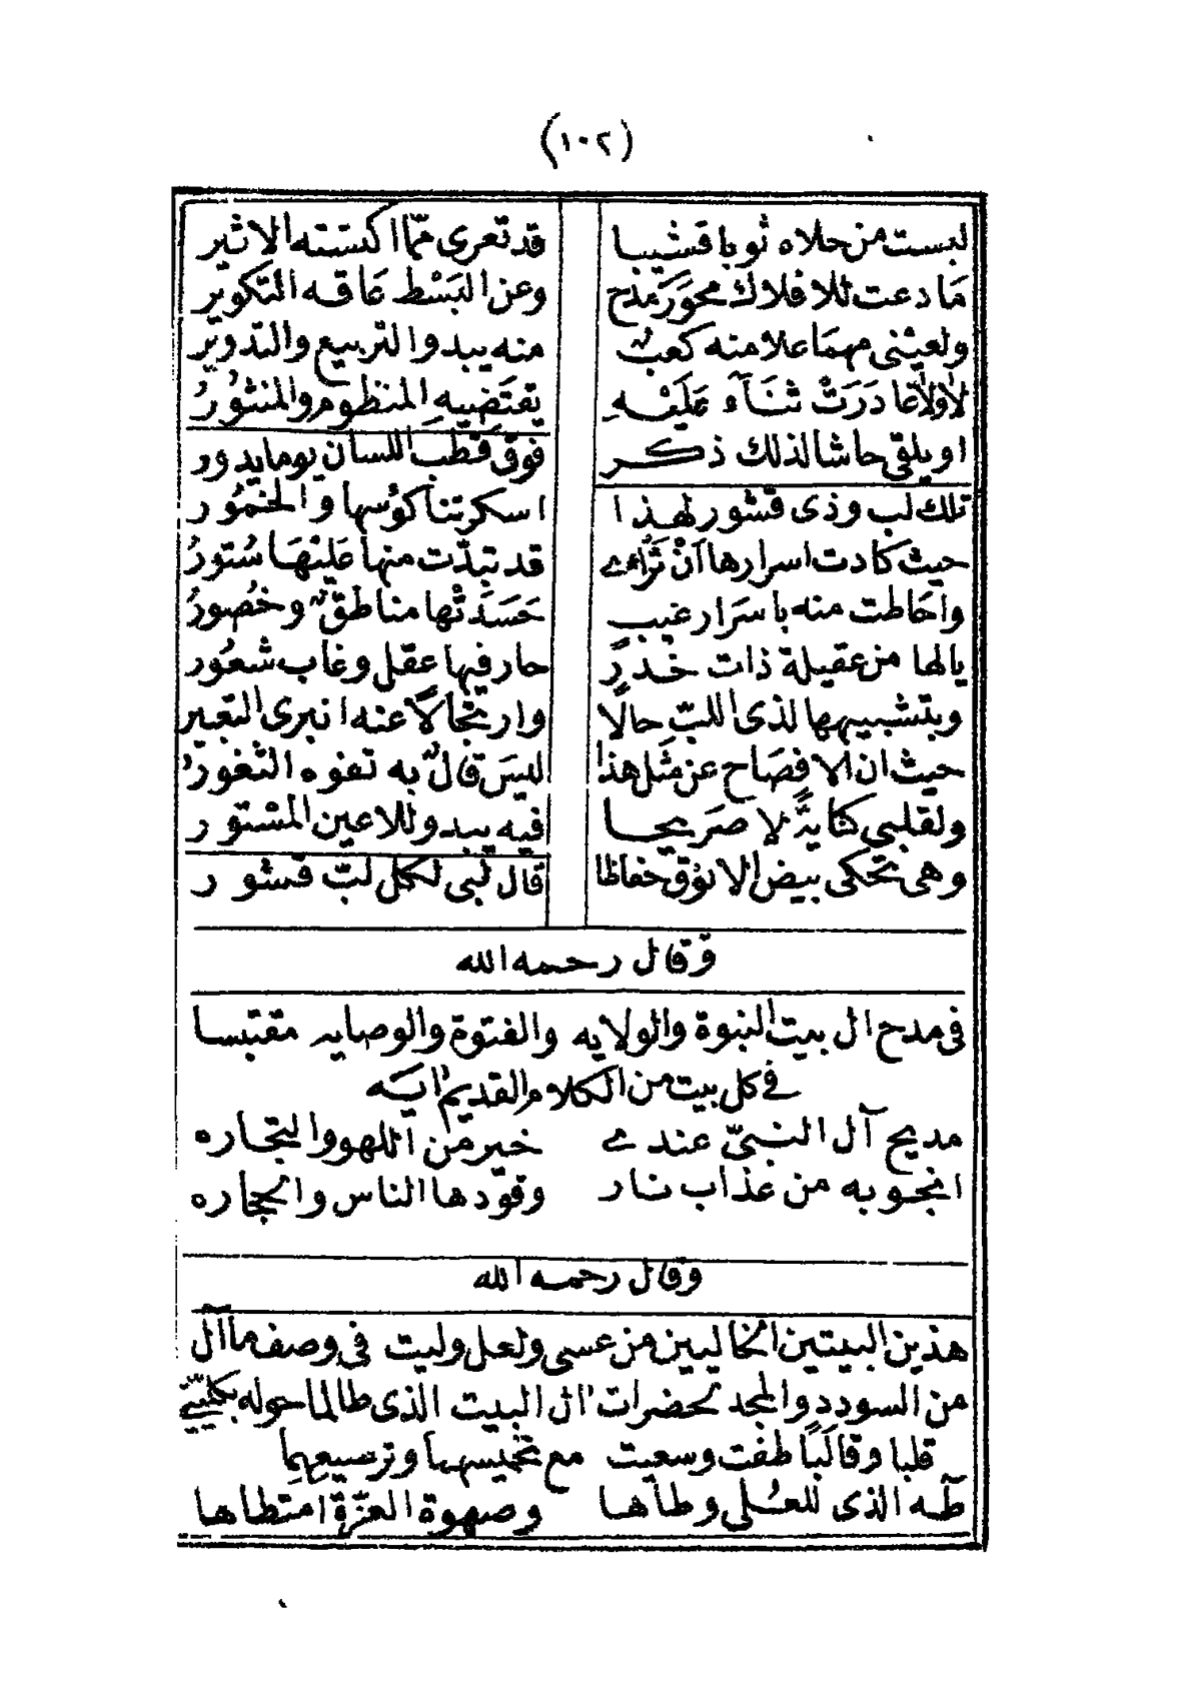 (١٠٢)
لبست من حلاه ثوبا قشيبا قد تعرى ممّا اكتسته الاثير
مَا دعت للافلاك محوَرَ مدح وعن البَسْط عَاقه التكوير
ولعيْنى مهمَا علا منه كعبٌ منه يبدو التربيع والتدويرُ
لا ولا غادَرَتْ ثنَآء عَلَيْهِ يقتَضِيهِ المنظوم والمنثورُ
او يلقى حاشا لذلك ذكر فوق قطب اللسان يوما يدور
تلك لب وذى قشور لهذا اسكرتنا كؤسها والخمُور
حيث كادت اسرارها اَنْ تَرَاءى قد تبدّت منها عَليْهَا سُتورُ
واحَاطت منه باسرَار غيبٍ حَسَدَتْها مناطقٌ وخصُورُ
يالها من عقيلة ذات خدرٍ حار فيها عقل وغاب شعُور
وبتشبيهها لذى اللبّ حالًا وارتجالًا عنه انبرى التعبير
حيث ان الافصَاح عن مثَل هذا ليسَ قالٌ به تفوه الثغورُ
ولقلبى كنايةً لا صَريحا فيه يبدو للاعين المستور
وهى تحكى بيض الانوق حفاظا قال لبى لكل لبّ قشور
وقال رحمه الله
فى مدح ال بيت النبوة والولايه والفتوة والوصايه مقتبسا
فى كل بيت من الكلام القديم ايَه
مديح آل النبىّ عندى خير من اللهو والتجاره
انجو به من عذاب نار وقودها الناس والحجاره
وقال رحمه الله
هذين البيتين الخاليين من عسى ولعل وليت فى وصف ماآل
من السودد والمجد لحضرات ال البيت الذى طالما حوله بكليتى
قلبا وقالَبًا طفت وسعيت مع تخميسهما وترصيعهما
طٓه الذى للعُلى وطاها وصهوة العزّة امتطاها